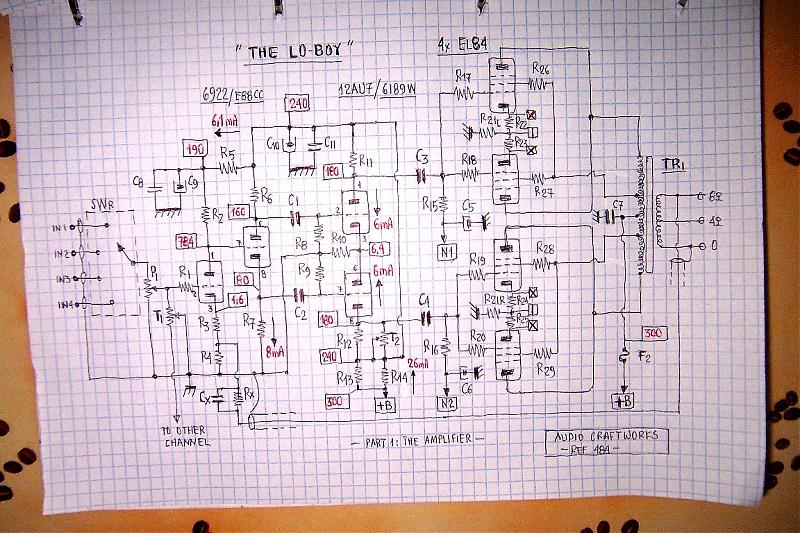 "THE LO-BOY"
4x EL84
6922/E88CC
12AU7/6189W
240
6,1mA
190
R5
C10
C11
R11
180
C3
R17
R26
R21L
R22
R23
R18
R27
C8
C9
R2
R6
160
C1
R15
C5
N1
C7
TR1
8Ω
4Ω
0
SWR
IN1
IN2
IN3
IN4
P1
R1
T1
R8
R10
6mA
6,4
R9
6mA
80
1,6
C2
R3
R7
8mA
R4
180
R12
T2
240
R13
R14
300
+B
C4
26mA
R16
R19
R28
R21R
R24
R25
R20
R29
C6
N2
300
F2
+B
CX
RX
TO OTHER
CHANNEL
— PART 1: THE AMPLIFIER —
AUDIO CRAFTWORKS
— REF 484 —